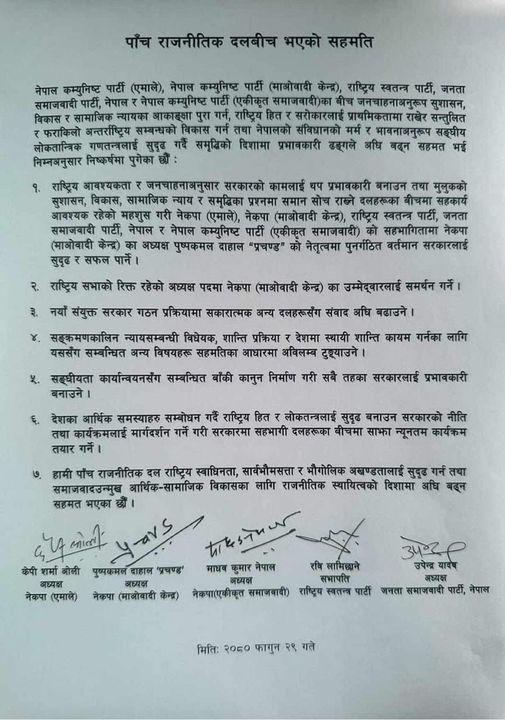 पाँच राजनीतिक दलबीच भएको सहमति
नेपाल कम्युनिष्ट पार्टी (एमाले), नेपाल कम्युनिष्ट पार्टी (माओवादी केन्द्र), राष्ट्रिय स्वतन्त्र पार्टी, जनता
समाजवादी पार्टी, नेपाल र नेपाल कम्युनिष्ट पार्टी (एकीकृत समाजवादी)का बीच जनचाहनाअनुरूप सुशासन,
विकास र सामाजिक न्यायका आकाङ्क्षा पुरा गर्न, राष्ट्रिय हित र सरोकारलाई प्राथमिकतामा राखेर सन्तुलित
र फराकिलो अन्तर्राष्ट्रिय सम्बन्धको विकास गर्न तथा नेपालको संविधानको मर्म र भावनाअनुरूप सङ्घीय
लोकतान्त्रिक गणतन्त्रलाई सुदृढ गर्दै समृद्धिको दिशामा प्रभावकारी ढङ्गले अघि बढ्न सहमत भई
निम्नअनुसार निष्कर्षमा पुगेका छौँ :
१. राष्ट्रिय आवश्यकता र जनचाहनाअनुसार सरकारको कामलाई थप प्रभावकारी बनाउन तथा मुलुकको
सुशासन, विकास, सामाजिक न्याय र समृद्धिका प्रश्नमा समान सोच राख्ने दलहरूका बीचमा सहकार्य
आवश्यक रहेको महशुस गरी नेकपा (एमाले), नेकपा (माओवादी केन्द्र), राष्ट्रिय स्वतन्त्र पार्टी, जनता
समाजवादी पार्टी, नेपाल र नेपाल कम्युनिष्ट पार्टी (एकीकृत समाजवादी) को सहभागितामा नेकपा
(माओवादी केन्द्र) का अध्यक्ष पुष्पकमल दाहाल "प्रचण्ड" को नेतृत्वमा पुनर्गठित वर्तमान सरकारलाई
सुदृढ र सफल पार्ने ।
२. राष्ट्रिय सभाको रिक्त रहेको अध्यक्ष पदमा नेकपा (माओवादी केन्द्र) का उम्मेद्वारलाई समर्थन गर्ने ।
३. नयाँ संयुक्त सरकार गठन प्रक्रियामा सकारात्मक अन्य दलहरूसँग संवाद अघि बढाउने ।
४. सङ्क्रमणकालिन न्यायसम्बन्धी विधेयक, शान्ति प्रक्रिया र देशमा स्थायी शान्ति कायम गर्नका लागि
यससँग सम्बन्धित अन्य विषयहरू सहमतिका आधारमा अविलम्ब टुङ्ग्याउने ।
५. सङ्घीयता कार्यान्वयनसँग सम्बन्धित बाँकी कानुन निर्माण गरी सबै तहका सरकारलाई प्रभावकारी
बनाउने ।
६. देशका आर्थिक समस्याहरु सम्बोधन गर्दै राष्ट्रिय हित र लोकतन्त्रलाई सुदृढ बनाउन सरकारको नीति
तथा कार्यक्रमलाई मार्गदर्शन गर्ने गरी सरकारमा सहभागी दलहरूका बीचमा साझा न्यूनतम कार्यक्रम
तयार गर्ने ।
७. हामी पाँच राजनीतिक दल राष्ट्रिय स्वाधिनता, सार्वभौमसत्ता र भौगोलिक अखण्डतालाई सुदृढ गर्न तथा
समाजवादउन्मुख आर्थिक-सामाजिक विकासका लागि राजनीतिक स्थायित्वको दिशामा अघि बढ्न
सहमत भएका छौँ ।
केपी शर्मा ओली पुष्पकमल दाहाल 'प्रचण्ड' माधव कुमार नेपाल रवि लामिछाने उपेन्द्र यादव
अध्यक्ष अध्यक्ष अध्यक्ष सभापति अध्यक्ष
नेकपा (एमाले) नेकपा (माओवादी केन्द्र) नेकपा(एकीकृत समाजवादी) राष्ट्रिय स्वतन्त्र पार्टी जनता समाजवादी पार्टी, नेपाल
मितिः २०८० फागुन २९ गते